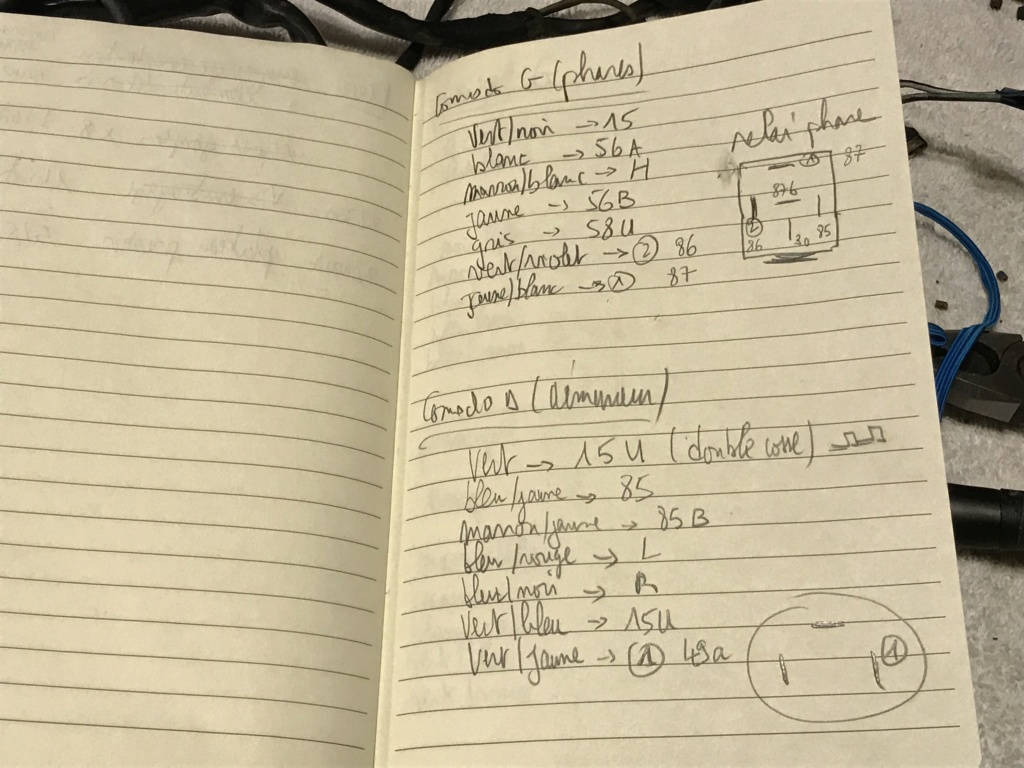 Comodo G (phares)
vert/noir → 15
blanc → 56A
marron/blanc → H
jaune → 56B
gris → 58U
vert/violet → ② 86
jaune/blanc → ① 87
relai phare
① 87
87b
② 86 30 85
Comodo D (démarreur)
Vert → 15U (double cosse)
bleu/jaune → 85
marron/jaune → 85B
bleu/rouge → L
bleu/noir → R
Vert/bleu → 15U
Vert/jaune → ① 49a
①